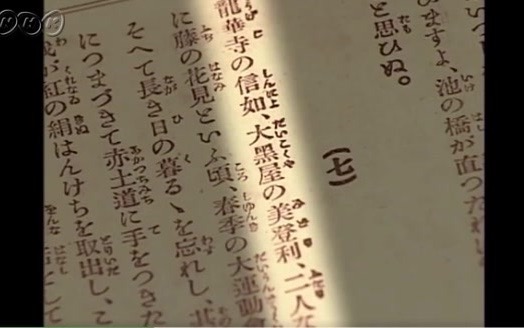 NHK
ひますよ、池の橋が直つたれ
と思ひぬ。
(七)
龍華寺の信如、大黑屋の美登利、二人な
に藤の花見といふ頃、春季の大運動會
そへて長き日の暮るゝを忘れし、
につまづきて赤土道に手をつきた
が紅の絹はんけちを取出し、こ